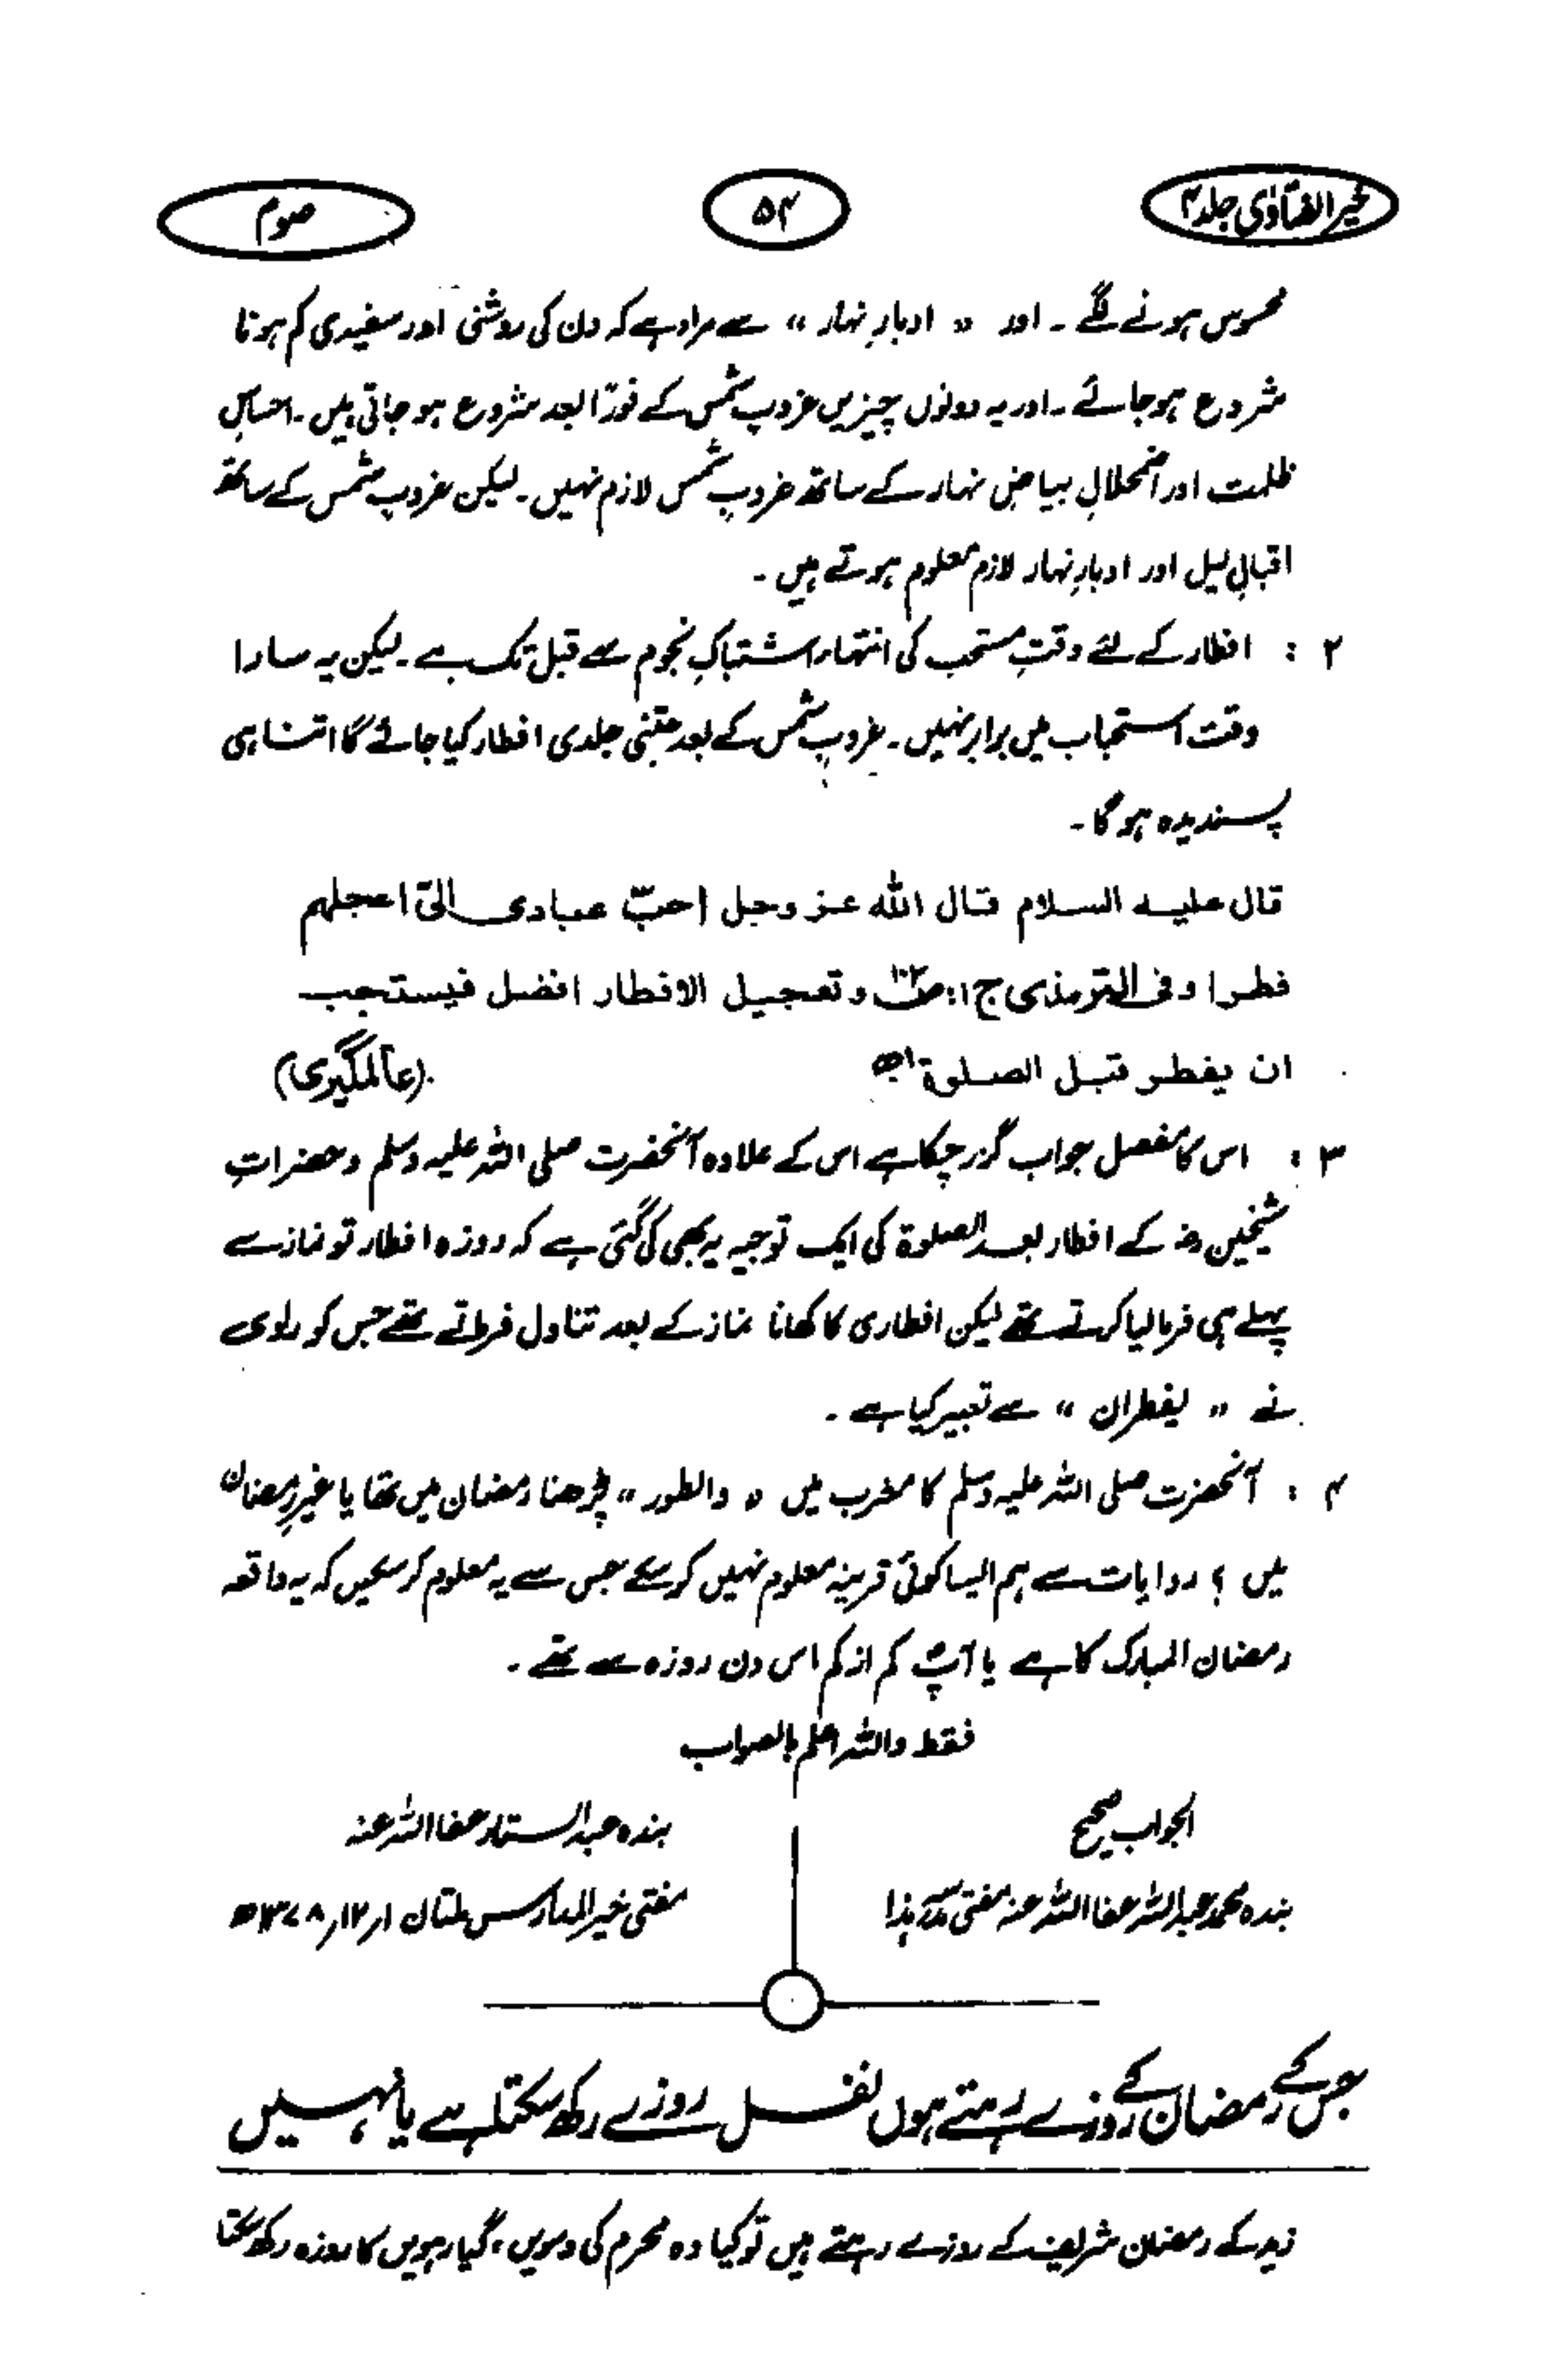 خیر الفتاوٰی جلد ۴
۵۴
صوم
محسوس ہونے لگے ۔ اور " ادبارِ نہار " سے مراد ہے کہ دن کی روشنی اور سفیدی کم ہونا
شروع ہو جائے ۔ اور یہ دونوں چیزیں غروبِ شمس کے فورًا بعد شروع ہو جاتی ہیں ۔ احساسِ
ظلمت اور اضمحلالِ بیاضِ نہار کے ساتھ غروبِ شمس لازم نہیں ۔ لیکن غروبِ شمس کے ساتھ
اقبالِ لیل اور ادبارِ نہار لازم معلوم ہوتے ہیں ۔
۲ : افطار کے لئے وقتِ مستحب کی انتہاء اشتباکِ نجوم سے قبل تک ہے ۔ لیکن یہ سارا
وقت استحباب میں برابر نہیں ۔ غروبِ شمس کے بعد جتنی جلدی افطار کیا جائے گا اتنا ہی
پسندیدہ ہوگا ۔
قال علیہ السلام قال اللہ عز وجل احبّ عبادی الیّ اعجلہم
فطرا وفی الترمذی ج ۱ : وتعجیل الافطار افضل فیستحب
ان یفطر قبل الصلوٰۃ اھ (عالمگیری)
۳ : اس کا مفصل جواب گزر چکا ہے اس کے علاوہ آنحضرت صلی اللہ علیہ وسلم و حضراتِ
شیخین رض کے افطار بعد الصلوۃ کی ایک توجیہ یہ بھی کی گئی ہے کہ روزہ افطار تو نماز سے
پہلے ہی فرما لیا کرتے تھے لیکن افطاری کا کھانا نماز کے بعد تناول فرماتے تھے جس کو راوی
نے " یفطران " سے تعبیر کیا ہے ۔
۴ : آنحضرت صلی اللہ علیہ وسلم کا مغرب میں " والطور " پڑھنا رمضان میں تھا یا غیرِ رمضان
میں ؟ روایات سے ہم ایسا کوئی قرینہ معلوم نہیں کر سکے جس سے یہ معلوم کر سکیں کہ یہ واقعہ
رمضان المبارک کا ہے یا آپؐ کم از کم اس دن روزہ سے تھے ۔
فقط واللہ اعلم بالصواب
الجواب صحیح
بندہ محمد عبداللہ عفا اللہ عنہ مفتی مدرسہ ہذا
بندہ عبدالستار عفا اللہ عنہ
مفتی خیر المدارس ملتان ۱۲/۱/ ۱۳۷۸ھ
جس کے رمضان کے روزے رہتے ہوں نفل روزے رکھ سکتا ہے یا نہیں
زید کے رمضان شریف کے روزے رہتے ہیں تو کیا وہ محرم کی دسویں، گیارہویں کا روزہ رکھ سکتا